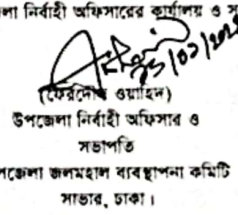 লা নির্বাহী অফিসারের কার্যালয় ও স
(ফেরদৌস ওয়াহিদ)
উপজেলা নির্বাহী অফিসার ও
সভাপতি
পজেলা জলমহাল ব্যবস্থাপনা কমিটি
সাভার, ঢাকা।